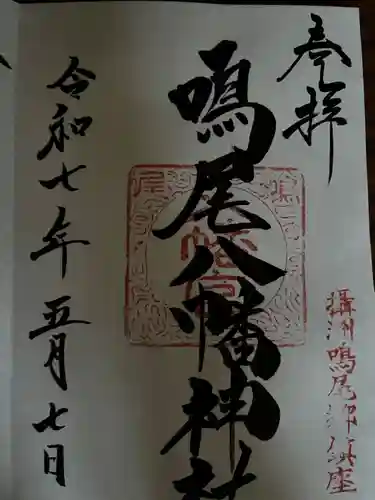 奉拝
攝州鳴尾御鎮座
鳴尾八幡神社
令和七年五月七日